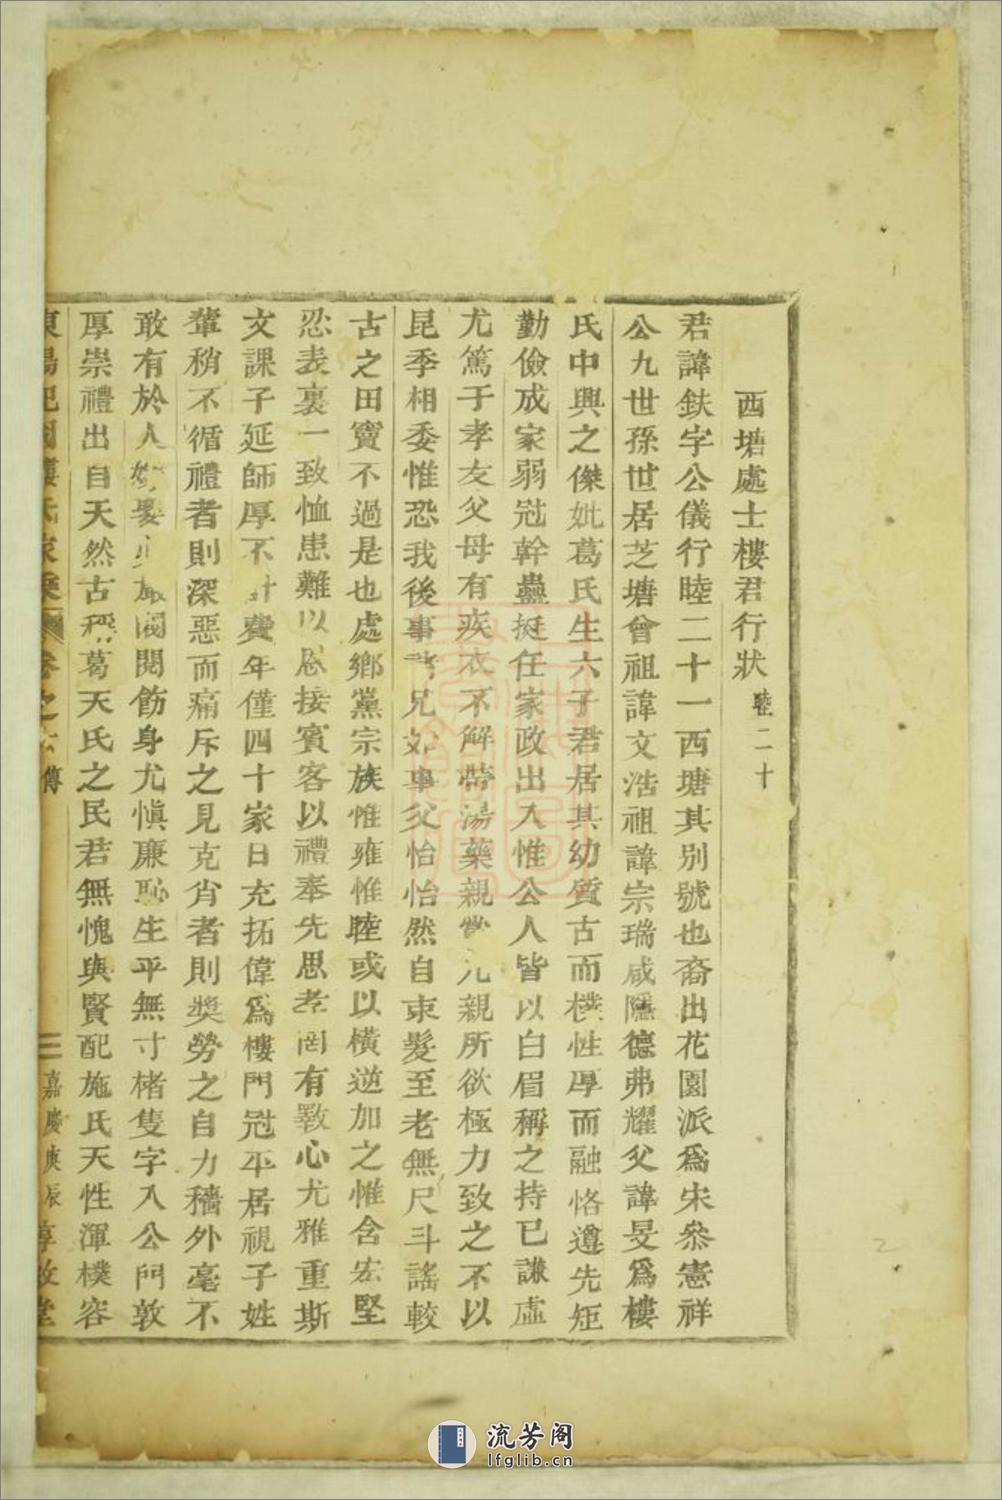 西塘處士樓君行狀 睦二十
君諱鈇字公儀行睦二十一西塘其别號也裔出花園派爲宋叅憲祥
公九世孫世居芝塘曾祖諱文浩祖諱宗瑞咸隱德弗耀父諱旻爲樓
氏中興之傑妣葛氏生六子君居其幼質古而樸性厚而融恪遵先矩
勤儉成家弱冠幹蠱挺任家政出入惟公人皆以白眉稱之持已謙虛
尤篤于孝友父母有疾衣不解帶湯藥親嘗凡親所欲極力致之不以
昆季相委惟恐我後事兄如事父怡怡然自束髮至老無尺斗謠較
古之田竇不過是也處鄉黨宗族惟雍惟睦或以橫逆加之惟含宏堅
忍表裏一致恤患難以恩接賓客以禮奉先思孝罔有斁心尤雅重斯
文課子延師厚不計費年僅四十家日充拓偉爲樓門冠平居視子姓
輩稍不循禮者則深惡而痛斥之見克肖者則獎勞之自力穡外毫不
敢有於人閥閱飭身尤愼廉恥生平無寸楮隻字入公門敦
厚崇禮出自天然古稱葛天氏之民君無愧與賢配施氏天性渾樸容
東陽杞國樓氏家乘 卷之 傳 三 嘉慶庚辰 敦堂
流芳阁
lfglib.cn